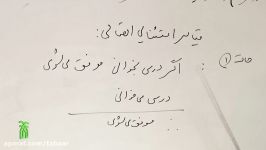 قیاس استثنایی اتصالی:
حالت (۱): اگر درس بخوانی موفق می‌شوی
درس می‌خوانی
∴ موفق می‌شوی
aparat.com/tabaar